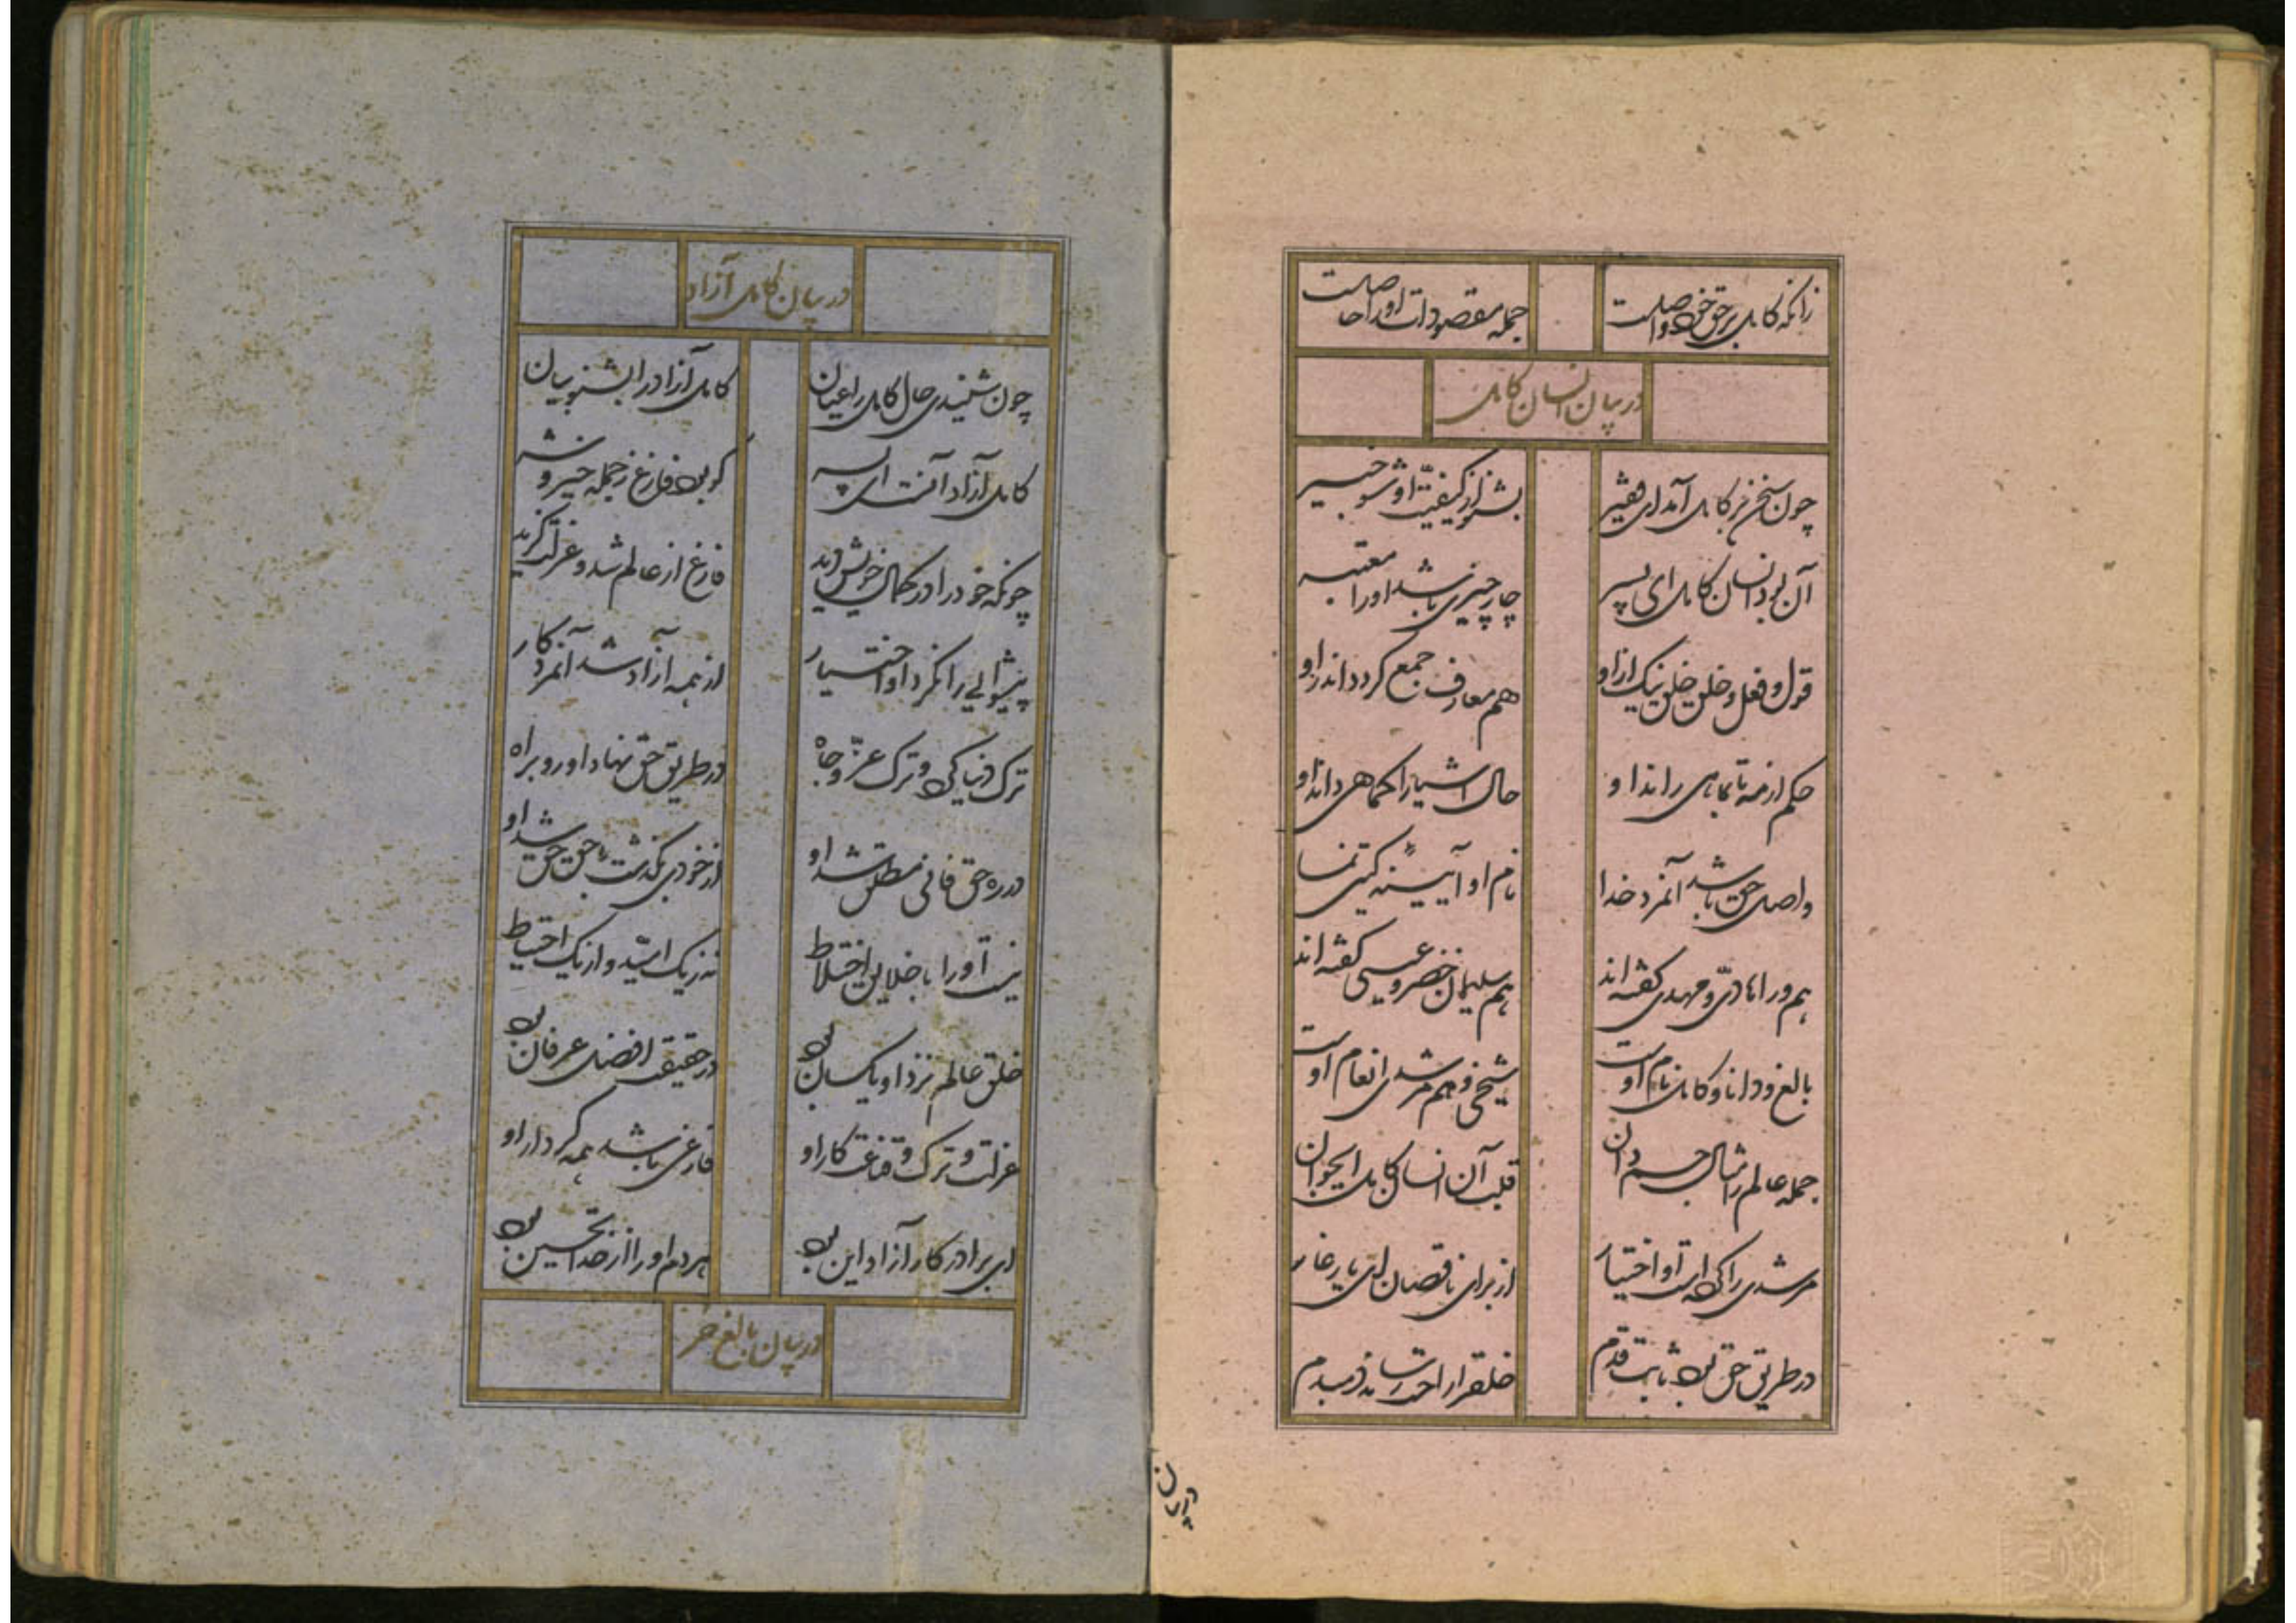 زانکه کامل بر حق خود واصلست جمله مقصودات او را حاصلست
در بیان انسان کامل
چون سخن بر کامل آمد ای فقیر بشنو از کیفیت او شو خبیر
آن بود انسان کامل ای پسر چار چیزی باشد او را معتبر
قول و فعل و خلق نیک از او هم معارف جمع کردد اندر او
حکم از مه تا بماهی راند او حال اشیا را کماهی داند او
واصل حق باشد آنمرد خدا نام او آیینه کیتی نما
هم ورا هادی و مهدی کفته اند هم سلیمان خضر و عیسی کفته اند
بالغ و دانا و کامل نام اوست شیخی و هم مرشدی انعام اوست
جمله عالم را مثال جسم دان قلب آن انسان کامل را بخوان
مرشدی را کرده است او اختیار از برای ناقصان ای یار غار
در طریق حق بود ثابت قدم خلق را راحت رساند دمبدم
در بیان
در بیان کامل آزاد
چون شنیدی حال کامل را عیان کامل آزاد را بشنو بیان
کامل آزاد آنست ای پسر کو بود فارغ ز جمله خیر و شر
چونکه خود را در کمال خویش دید فارغ از عالم شد و عزلت کزید
پیشوایی را نکرد او اختیار از همه آزاد شد آنمرد کار
ترک دنیا کرد و ترک عز و جاه در طریق حق نهاد او رو براه
در ره حق فانی مطلق شد او از خودی بکذشت با حق حق شد او
نیست او را با خلایق اختلاط نه ز یک امید و از یک احتیاط
خلق عالم نزد او یکسان بود در حقیقت افضل عرفان بود
عزلت و ترک و قناعت کار او فارغی باشد همه کردار او
ای برادر کار آزاد این بود هر دم او را از خدا تحسین بود
در بیان بالغ حر